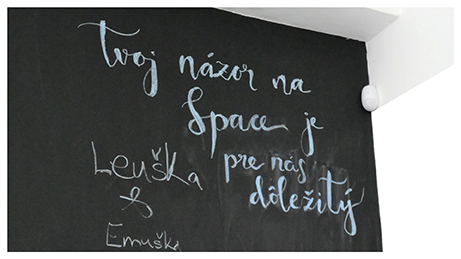 tvoj názor na
Space je
pre nás
dôležitý
Leuška
&
Emuška